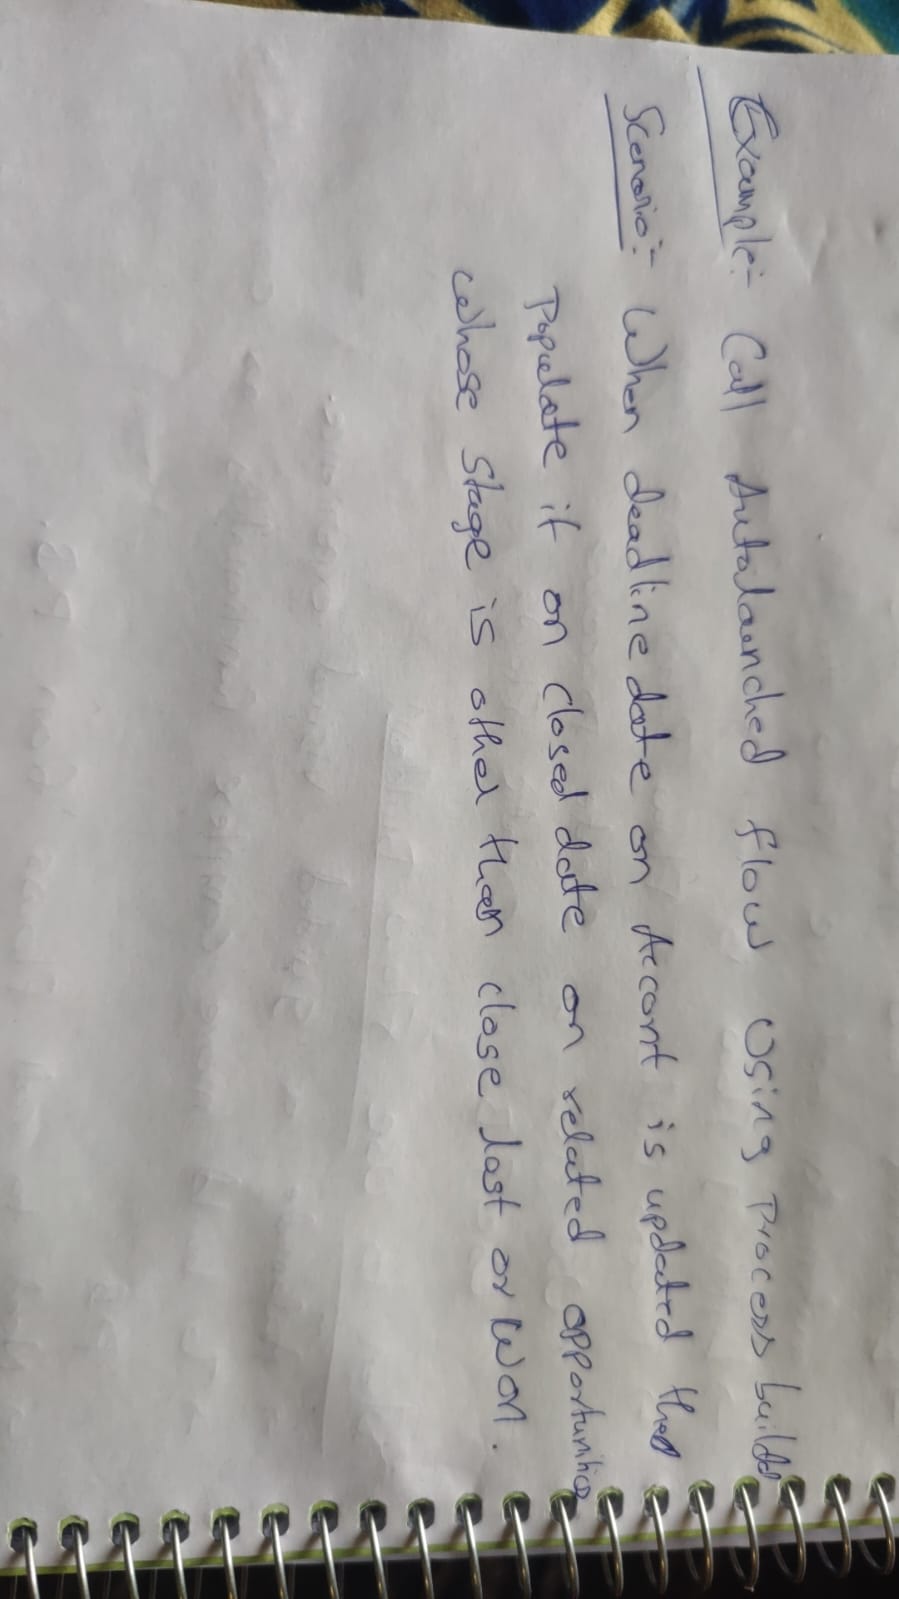 Example:- Call Autolaunched flow Using Process builder
Scenario:- When deadline date on Account is updated then
Populate it on closed date on related opportunities
whose stage is other than close lost or won.